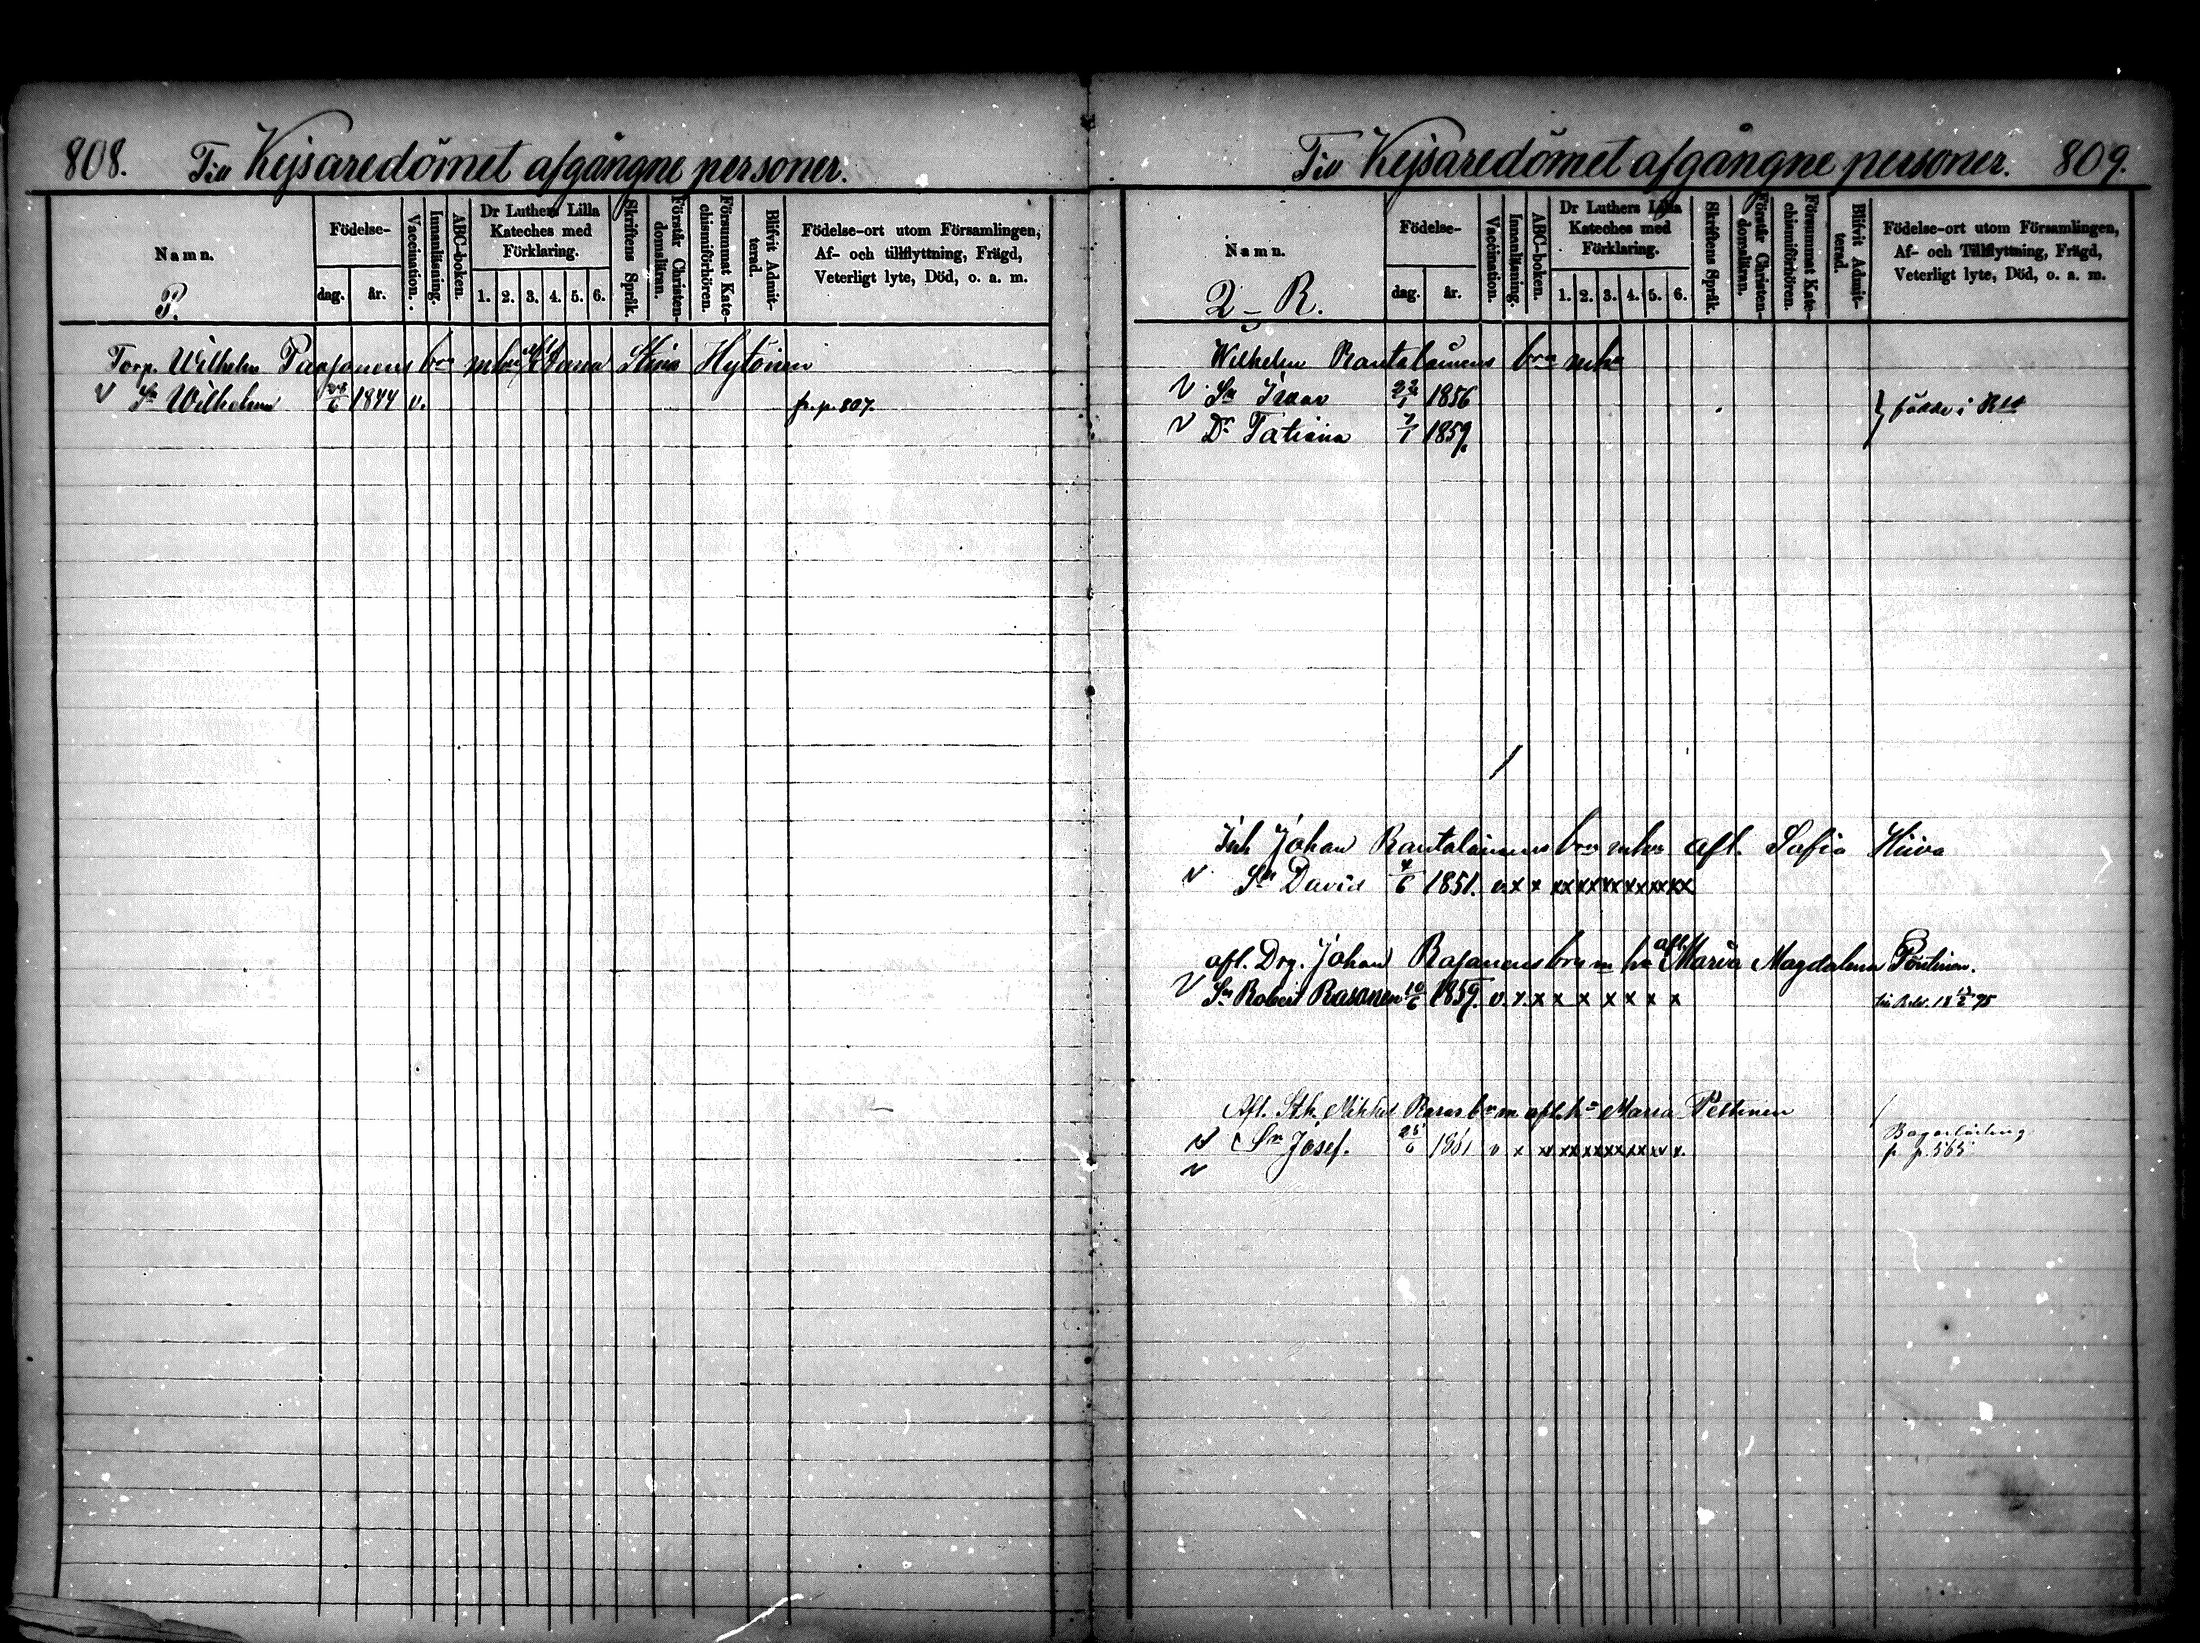 808. Till Kejsaredömet afgångne personer.
Namn.
P.
Födelse-
dag.
år.
Vaccination.
Innanläsning.
ABC-boken.
Dr Luthers Lilla Kateches med Förklaring.
1. 2. 3. 4. 5. 6.
Skriftens Språk.
Förstår Christendomsläran.
Försummat Katechismiförhören.
Blifvit Admitterad.
Födelse-ort utom Församlingen,
Af- och tillflyttning, Frägd,
Veterligt lyte, Död, o. a. m.
Torp. Wilhelm Paasonens Stina Hytönen
v Sn Wilhelm 6 1844 v. fr. p. 807.
Till Kejsaredömet afgångne personer. 809.
Namn.
Q - R.
Födelse-
dag.
år.
Vaccination.
Innanläsning.
ABC-boken.
Dr Luthers Lilla Kateches med Förklaring.
1. 2. 3. 4. 5. 6.
Skriftens Språk.
Förstår Christendomsläran.
Försummat Katechismiförhören.
Blifvit Admitterad.
Födelse-ort utom Församlingen,
Af- och Tillflyttning, Frägd,
Veterligt lyte, Död, o. a. m.
Wilhelm Rantalainens
v Sn Isaac 22/1 1856
v Dr Tatiana 7/1 1859. } födde i
Johan Rantalainens afl. Sofia Hiiva
v Sn David 4/6 1851. v x x xx xx xx xx xx xx
afl. Drg. Johan Rasanens afl. Maria Magdalena Pöntinen.
v Sn Robert Rasanen 10/6 1859. v. x. x x x x x x x
Afl. Sth. Mikkel afl. Maria Peltinen
v Sn Josef. 25/6 1861 v x xx xx xx xx xx x
p. 565
v